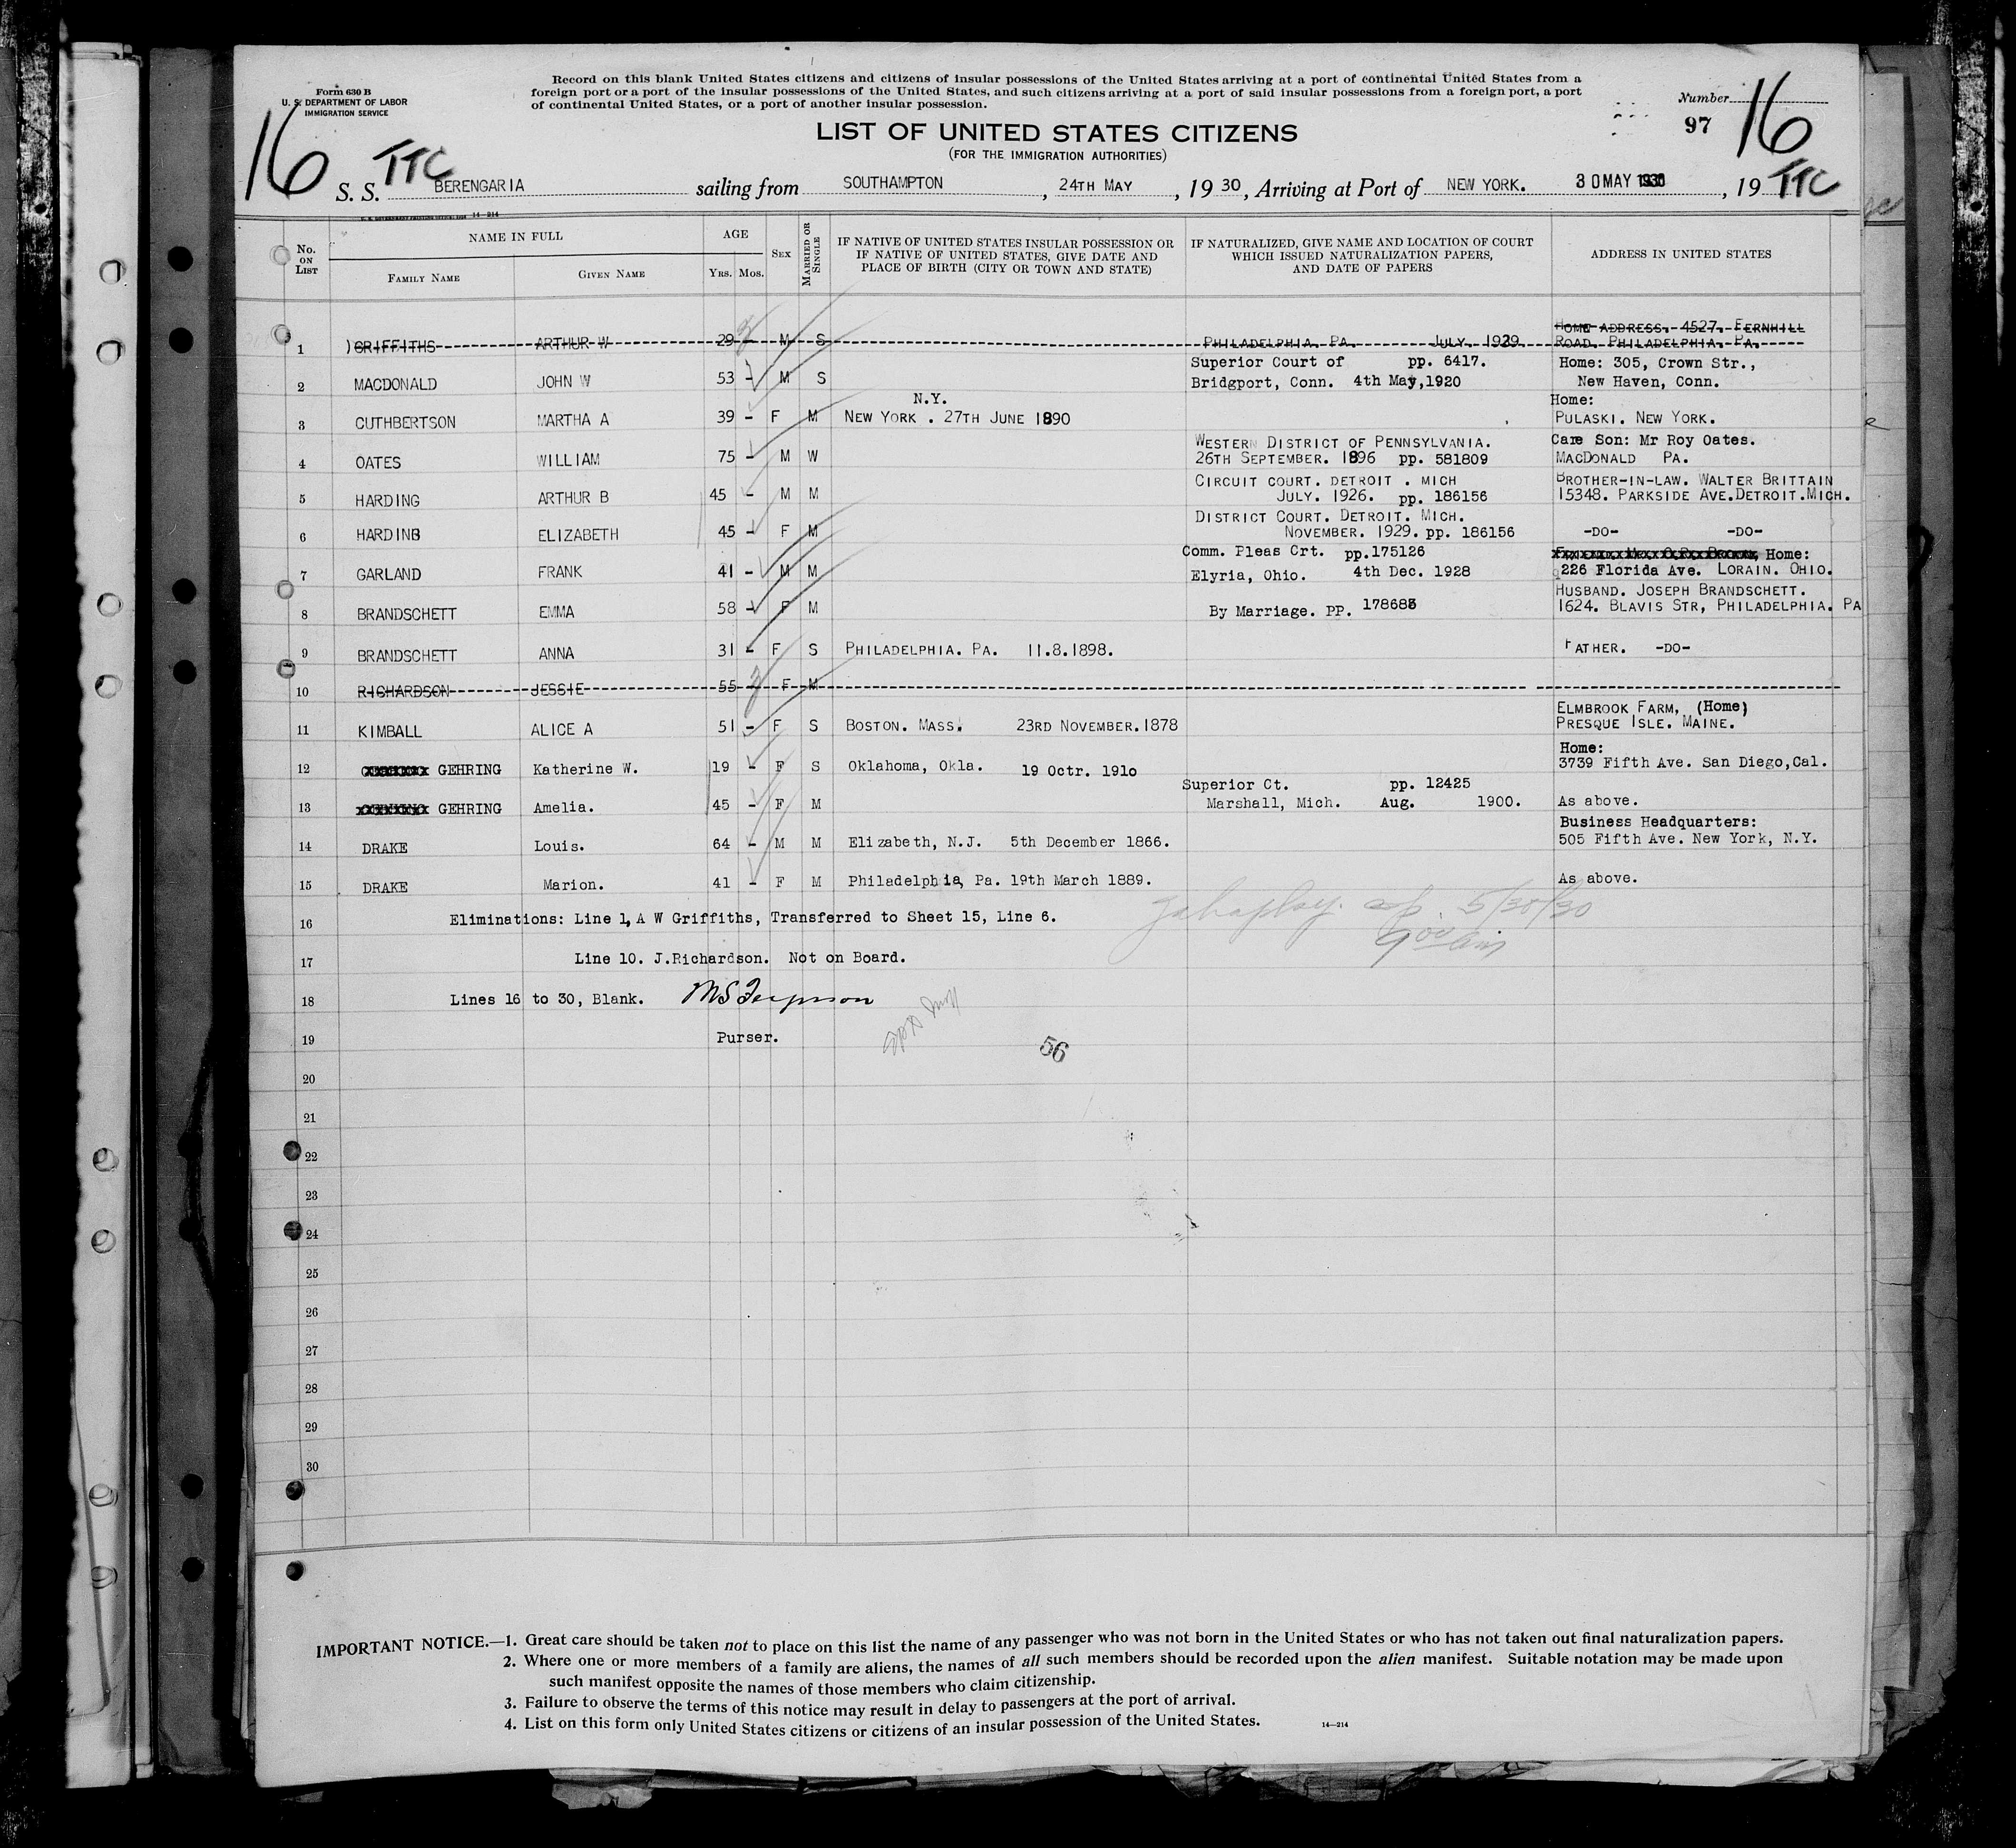 Form 630 B
U. S. DEPARTMENT OF LABOR
IMMIGRATION SERVICE
Record on this blank United States citizens and citizens of insular possessions of the United States arriving at a port of continental United States from a
foreign port or a port of the insular possessions of the United States, and such citizens arriving at a port of said insular possessions from a foreign port, a port
of continental United States, or a port of another insular possession.
Number
97
16
16
LIST OF UNITED STATES CITIZENS
(FOR THE IMMIGRATION AUTHORITIES)
TTC
S. S. BERENGARIA sailing from SOUTHAMPTON, 24TH MAY, 19 30, Arriving at Port of NEW YORK. 30 MAY 1930, 19 TTC
14-214
No. ON LIST
NAME IN FULL
FAMILY NAME
GIVEN NAME
AGE
YRS. MOS.
SEX
MARRIED OR SINGLE
IF NATIVE OF UNITED STATES INSULAR POSSESSION OR
IF NATIVE OF UNITED STATES, GIVE DATE AND
PLACE OF BIRTH (CITY OR TOWN AND STATE)
IF NATURALIZED, GIVE NAME AND LOCATION OF COURT
WHICH ISSUED NATURALIZATION PAPERS,
AND DATE OF PAPERS
ADDRESS IN UNITED STATES
HOME ADDRESS. 4527. FERNHILL
1 GRIFFITHS ARTHUR W 29 - M S PHILADELPHIA. PA. JULY. 1929. ROAD. PHILADELPHIA. PA.
Superior Court of pp. 6417. Home: 305, Crown Str.,
2 MACDONALD JOHN W 53 - M S Bridgport, Conn. 4th May,1920 New Haven, Conn.
N.Y. Home:
3 CUTHBERTSON MARTHA A 39 - F M NEW YORK . 27TH JUNE 1890 PULASKI. NEW YORK.
WESTERN DISTRICT OF PENNSYLVANIA. Care Son: Mr Roy Oates.
4 OATES WILLIAM 75 - M W 26TH SEPTEMBER. 1896 pp. 581809 MACDONALD PA.
CIRCUIT COURT. DETROIT . MICH BROTHER-IN-LAW. WALTER BRITTAIN
5 HARDING ARTHUR B 45 - M M JULY. 1926. pp. 186156 15348. PARKSIDE AVE.DETROIT.MICH.
DISTRICT COURT. DETROIT. MICH.
6 HARDING ELIZABETH 45 - F M NOVEMBER. 1929. pp. 186156 -DO- -DO-
Comm. Pleas Crt. pp.175126 Home:
7 GARLAND FRANK 41 - M M Elyria, Ohio. 4th Dec. 1928 226 Florida Ave. LORAIN. OHIO.
HUSBAND. JOSEPH BRANDSCHETT.
8 BRANDSCHETT EMMA 58 - F M By Marriage. PP. 178683 1624. BLAVIS STR, PHILADELPHIA. PA
9 BRANDSCHETT ANNA 31 - F S PHILADELPHIA. PA. 11.8.1898. FATHER. -DO-
10 RICHARDSON JESSIE 55 - F M
ELMBROOK FARM, (Home)
11 KIMBALL ALICE A 51 - F S BOSTON. MASS. 23RD NOVEMBER.1878 PRESQUE ISLE. MAINE.
Home:
12 GEHRING Katherine W. 19 - F S Oklahoma, Okla. 19 Octr. 1910 3739 Fifth Ave. San Diego,Cal.
Superior Ct. pp. 12425
13 GEHRING Amelia. 45 - F M Marshall, Mich. Aug. 1900. As above.
Business Headquarters:
14 DRAKE Louis. 64 - M M Elizabeth, N.J. 5th December 1866. 505 Fifth Ave. New York, N.Y.
15 DRAKE Marion. 41 - F M Philadelphia, Pa. 19th March 1889. As above.
5/30/30
16 Eliminations: Line 1, A W Griffiths, Transferred to Sheet 15, Line 6.
9 00 am
17 Line 10. J.Richardson. Not on Board.
18 Lines 16 to 30, Blank. MS Ferguson
19 Purser.
56
20
21
22
23
24
25
26
27
28
29
30
IMPORTANT NOTICE.—1. Great care should be taken not to place on this list the name of any passenger who was not born in the United States or who has not taken out final naturalization papers.
2. Where one or more members of a family are aliens, the names of all such members should be recorded upon the alien manifest. Suitable notation may be made upon
such manifest opposite the names of those members who claim citizenship.
3. Failure to observe the terms of this notice may result in delay to passengers at the port of arrival.
4. List on this form only United States citizens or citizens of an insular possession of the United States.
14—214